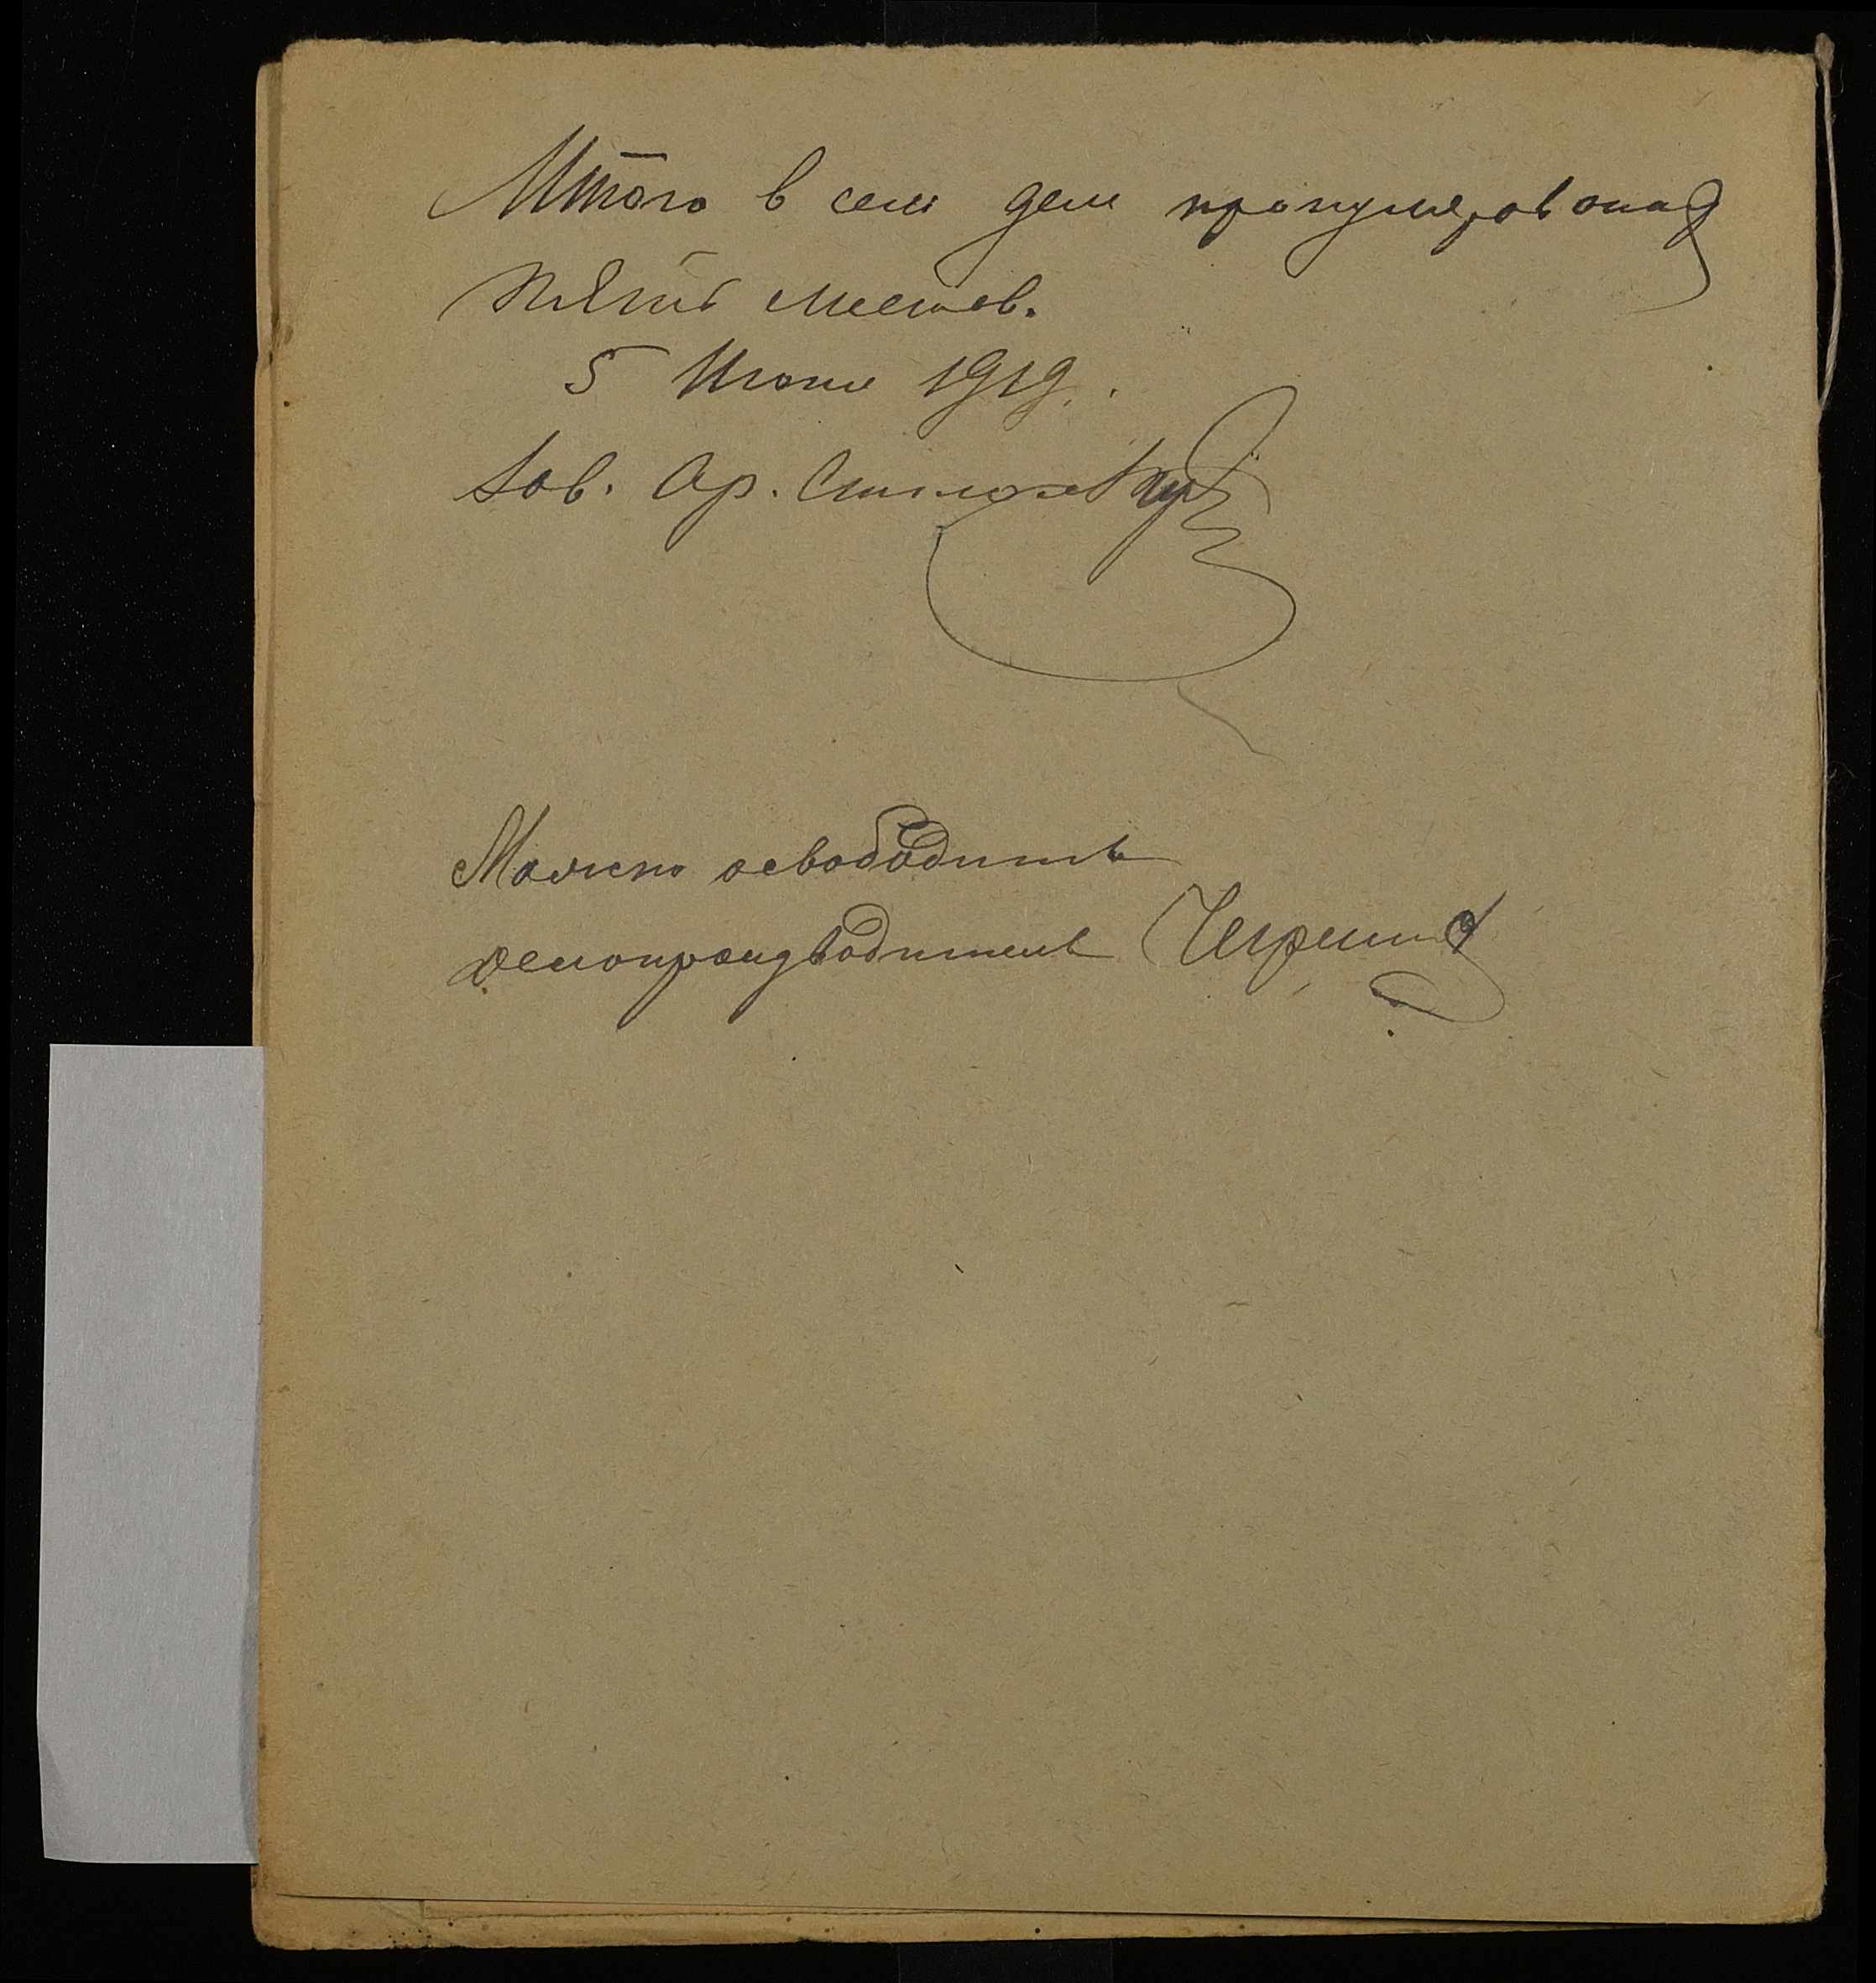 Итого в сем деле пронумерована
Пять листов.
5 Июня 1919.
Зав. Ар. Столом
Можно освободить
делопроизводитель